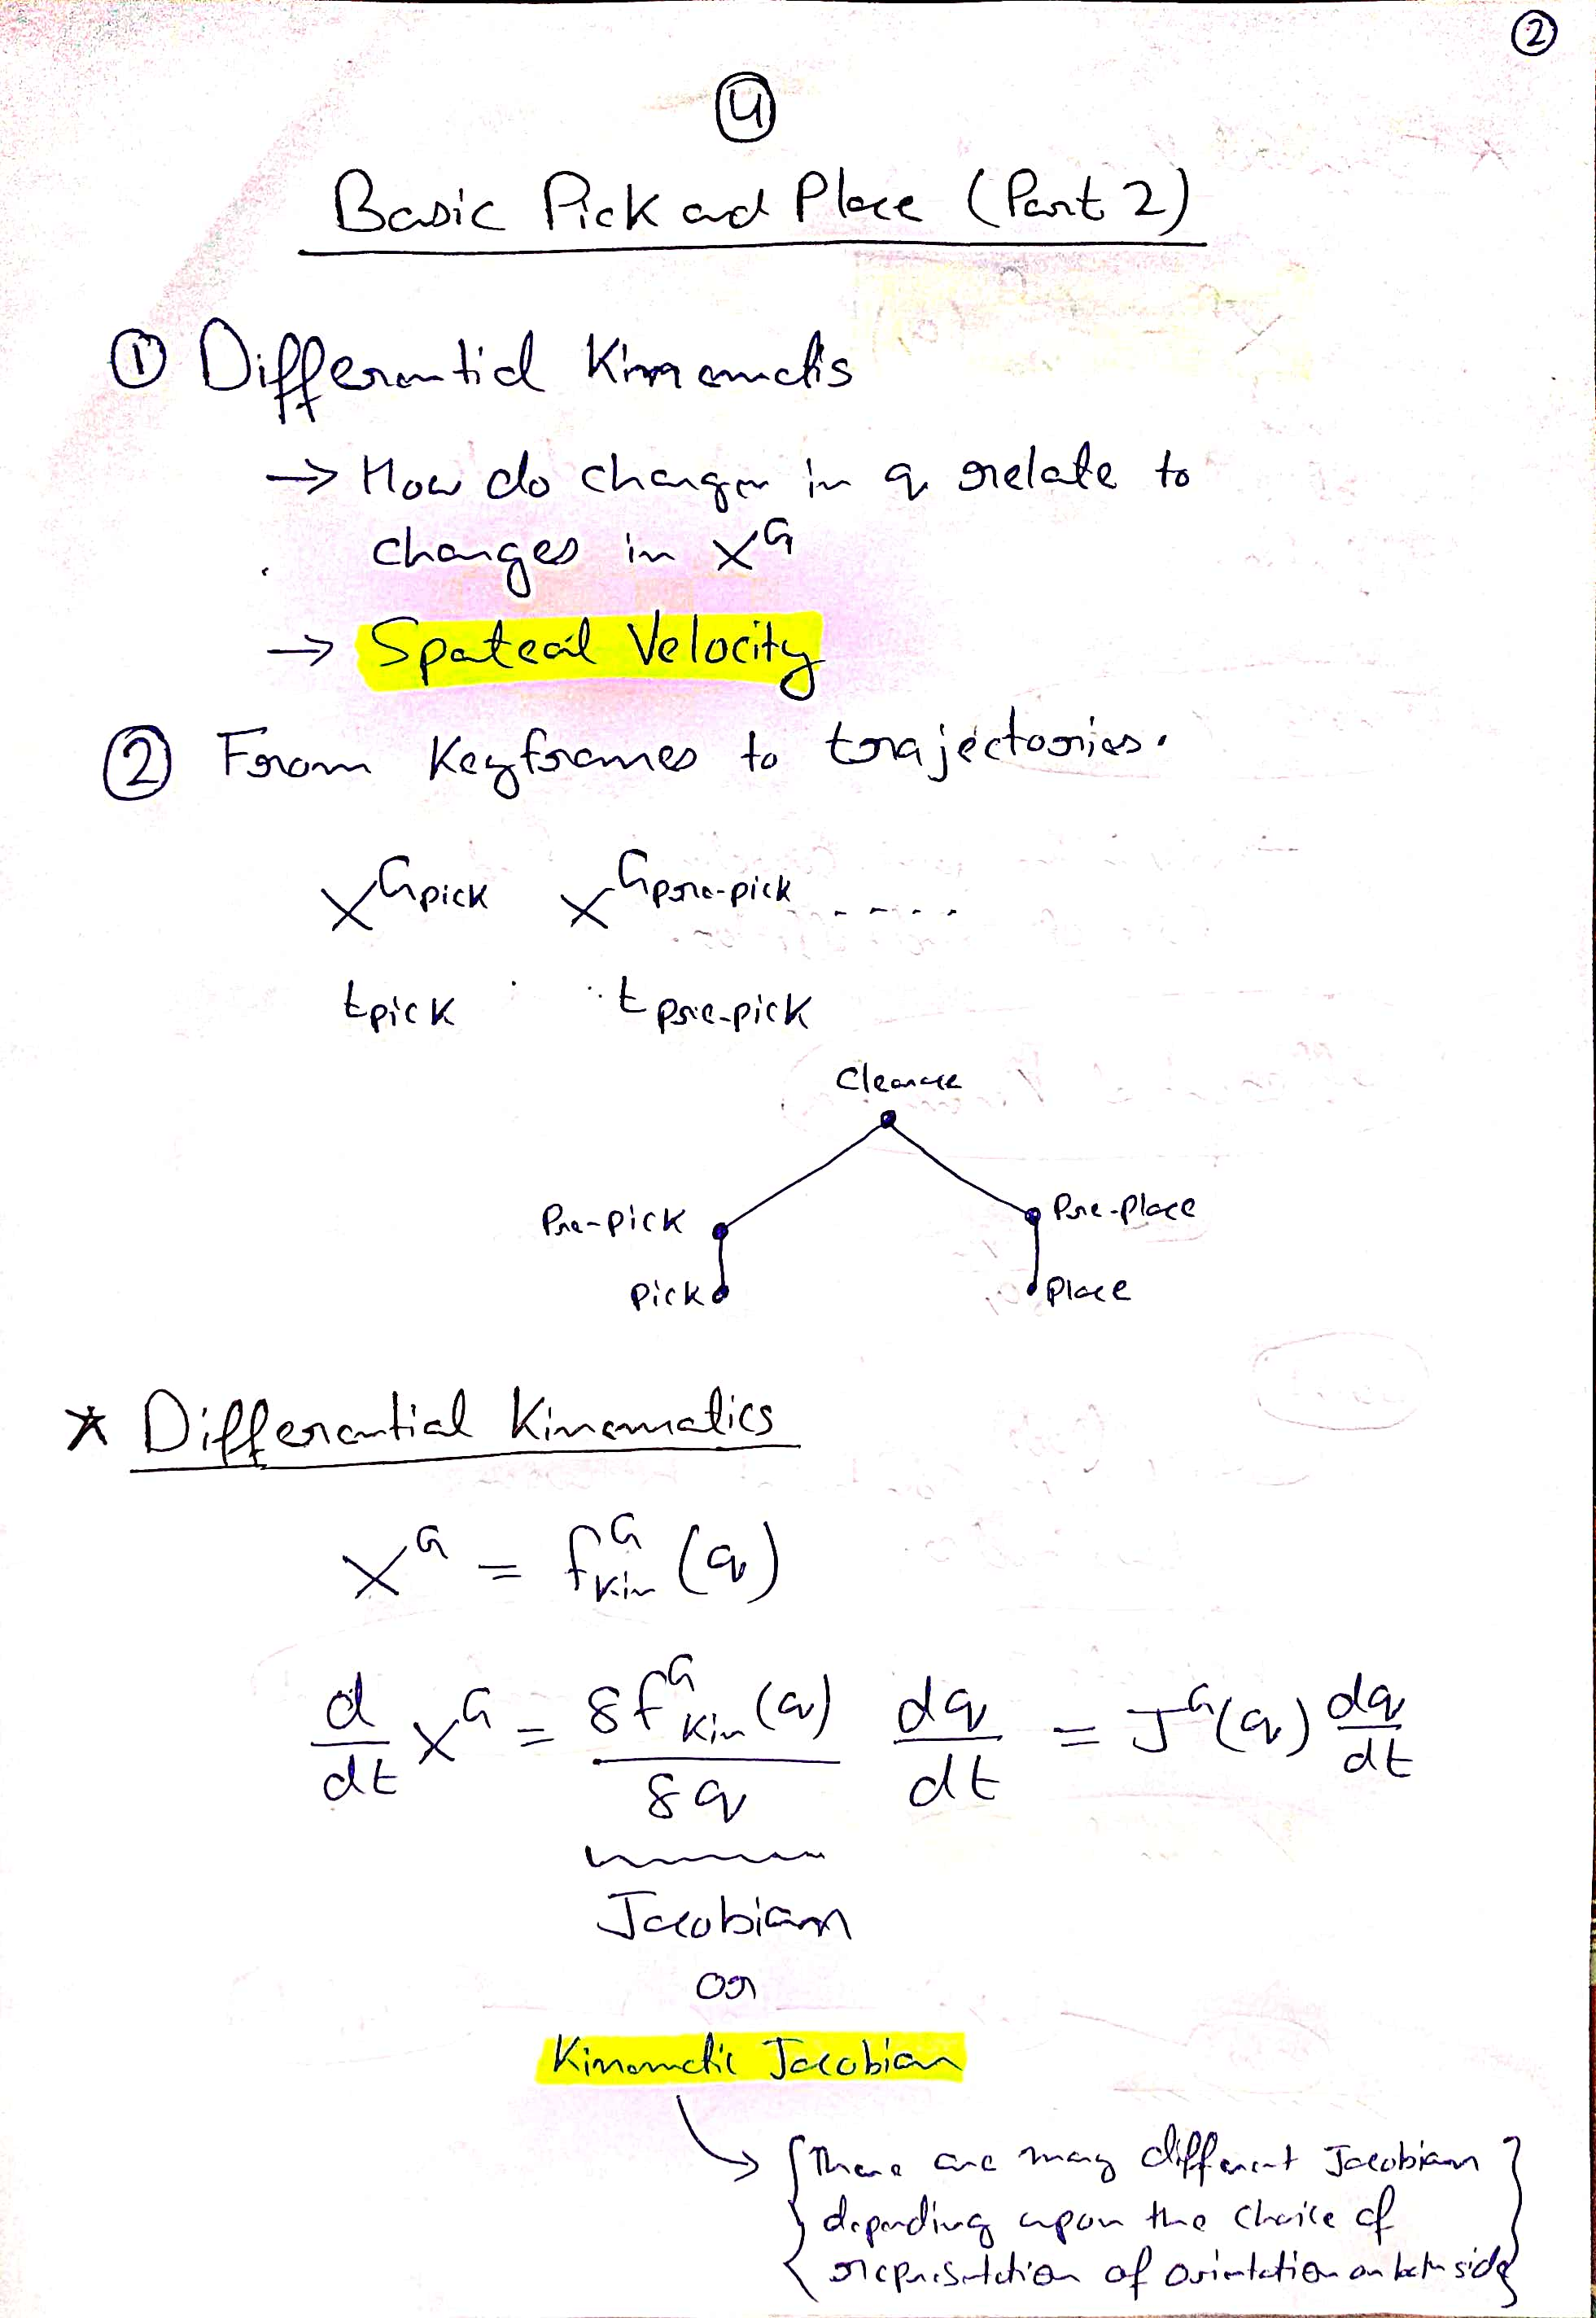 ②
④
Basic Pick and Place (Part 2)
① Differential Kinematis
→ How do changes in q relate to
changes in X^G
→ Spateail Velocity
② From Keyframes to trajectories.
X^G_pick X^G_pre-pick -----
t_pick t_pre-pick
Clearance
Pre-pick Pre-Place
Pick Place
* Differential Kinematics
X^G = f^G_kin (q)
d/dt X^G = δf^G_kin(q)/δq dq/dt = J^G(q) dq/dt
Jacobian
or
Kinematic Jacobian
→ {There are many different Jacobian
depending upon the choice of
representation of orientation on both side}